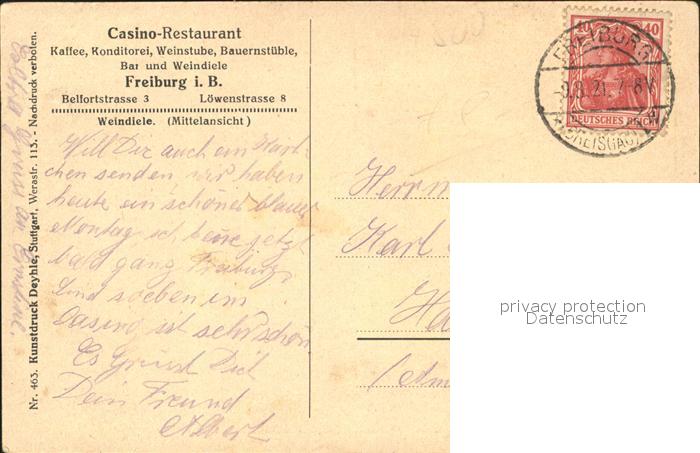 Casino-Restaurant
Kaffee, Konditorei, Weinstube, Bauernstüble,
Bar und Weindiele
Freiburg i. B.
Belfortstrasse 3 Löwenstrasse 8
Weindiele. (Mittelansicht)
Will Dir auch ein Kärt-
chen senden wir haben
heute ein schöner blauer
Montag ich kenne jetzt
bald ganz Freiburg.
Sind soeben im
Casino ist sehr schön
Es Grüsst Dich
Dein Freund
Albert
Nr. 463. Kunstdruck Deyhle, Stuttgart, Werastr. 113. - Nachdruck verboten.
Gruss an
40
DEUTSCHES REICH
FREIBURG
9.8.21. 7-8V.
(BREISGAU)
Herrn
Karl
privacy protection
Datenschutz